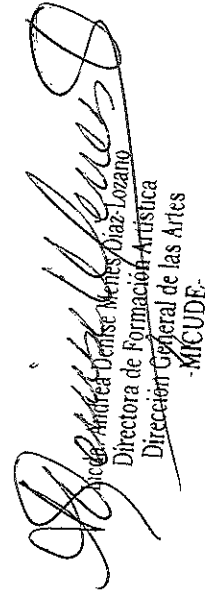 Licda. Andrea Denise Menes Díaz-Lozano
Directora de Formación Artística
Dirección General de las Artes
-MICUDE-